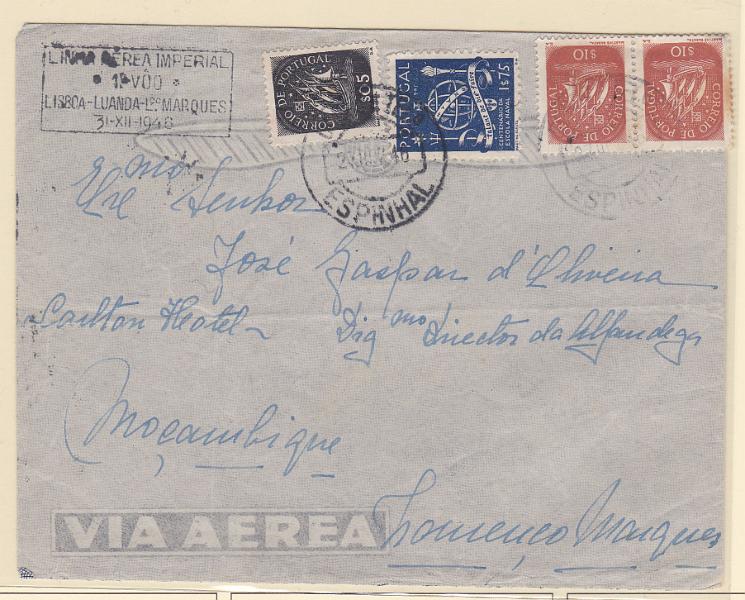 LINHA AÉREA IMPERIAL
1º VÔO
LISBOA-LUANDA-Lço MARQUES
31-XII-1946
CORREIO DE PORTUGAL
$05
PORTUGAL
1$75
CENTENÁRIO DA ESCOLA NAVAL
CORREIO DE PORTUGAL
$10
CORREIO DE PORTUGAL
$10
ESPINHAL
ESPINHAL
Exmo Senhor
José Gaspar d'Oliveira
Carlton Hotel - Digmo Director da Alfandega
Moçambique
VIA AEREA
Lourenço Marques